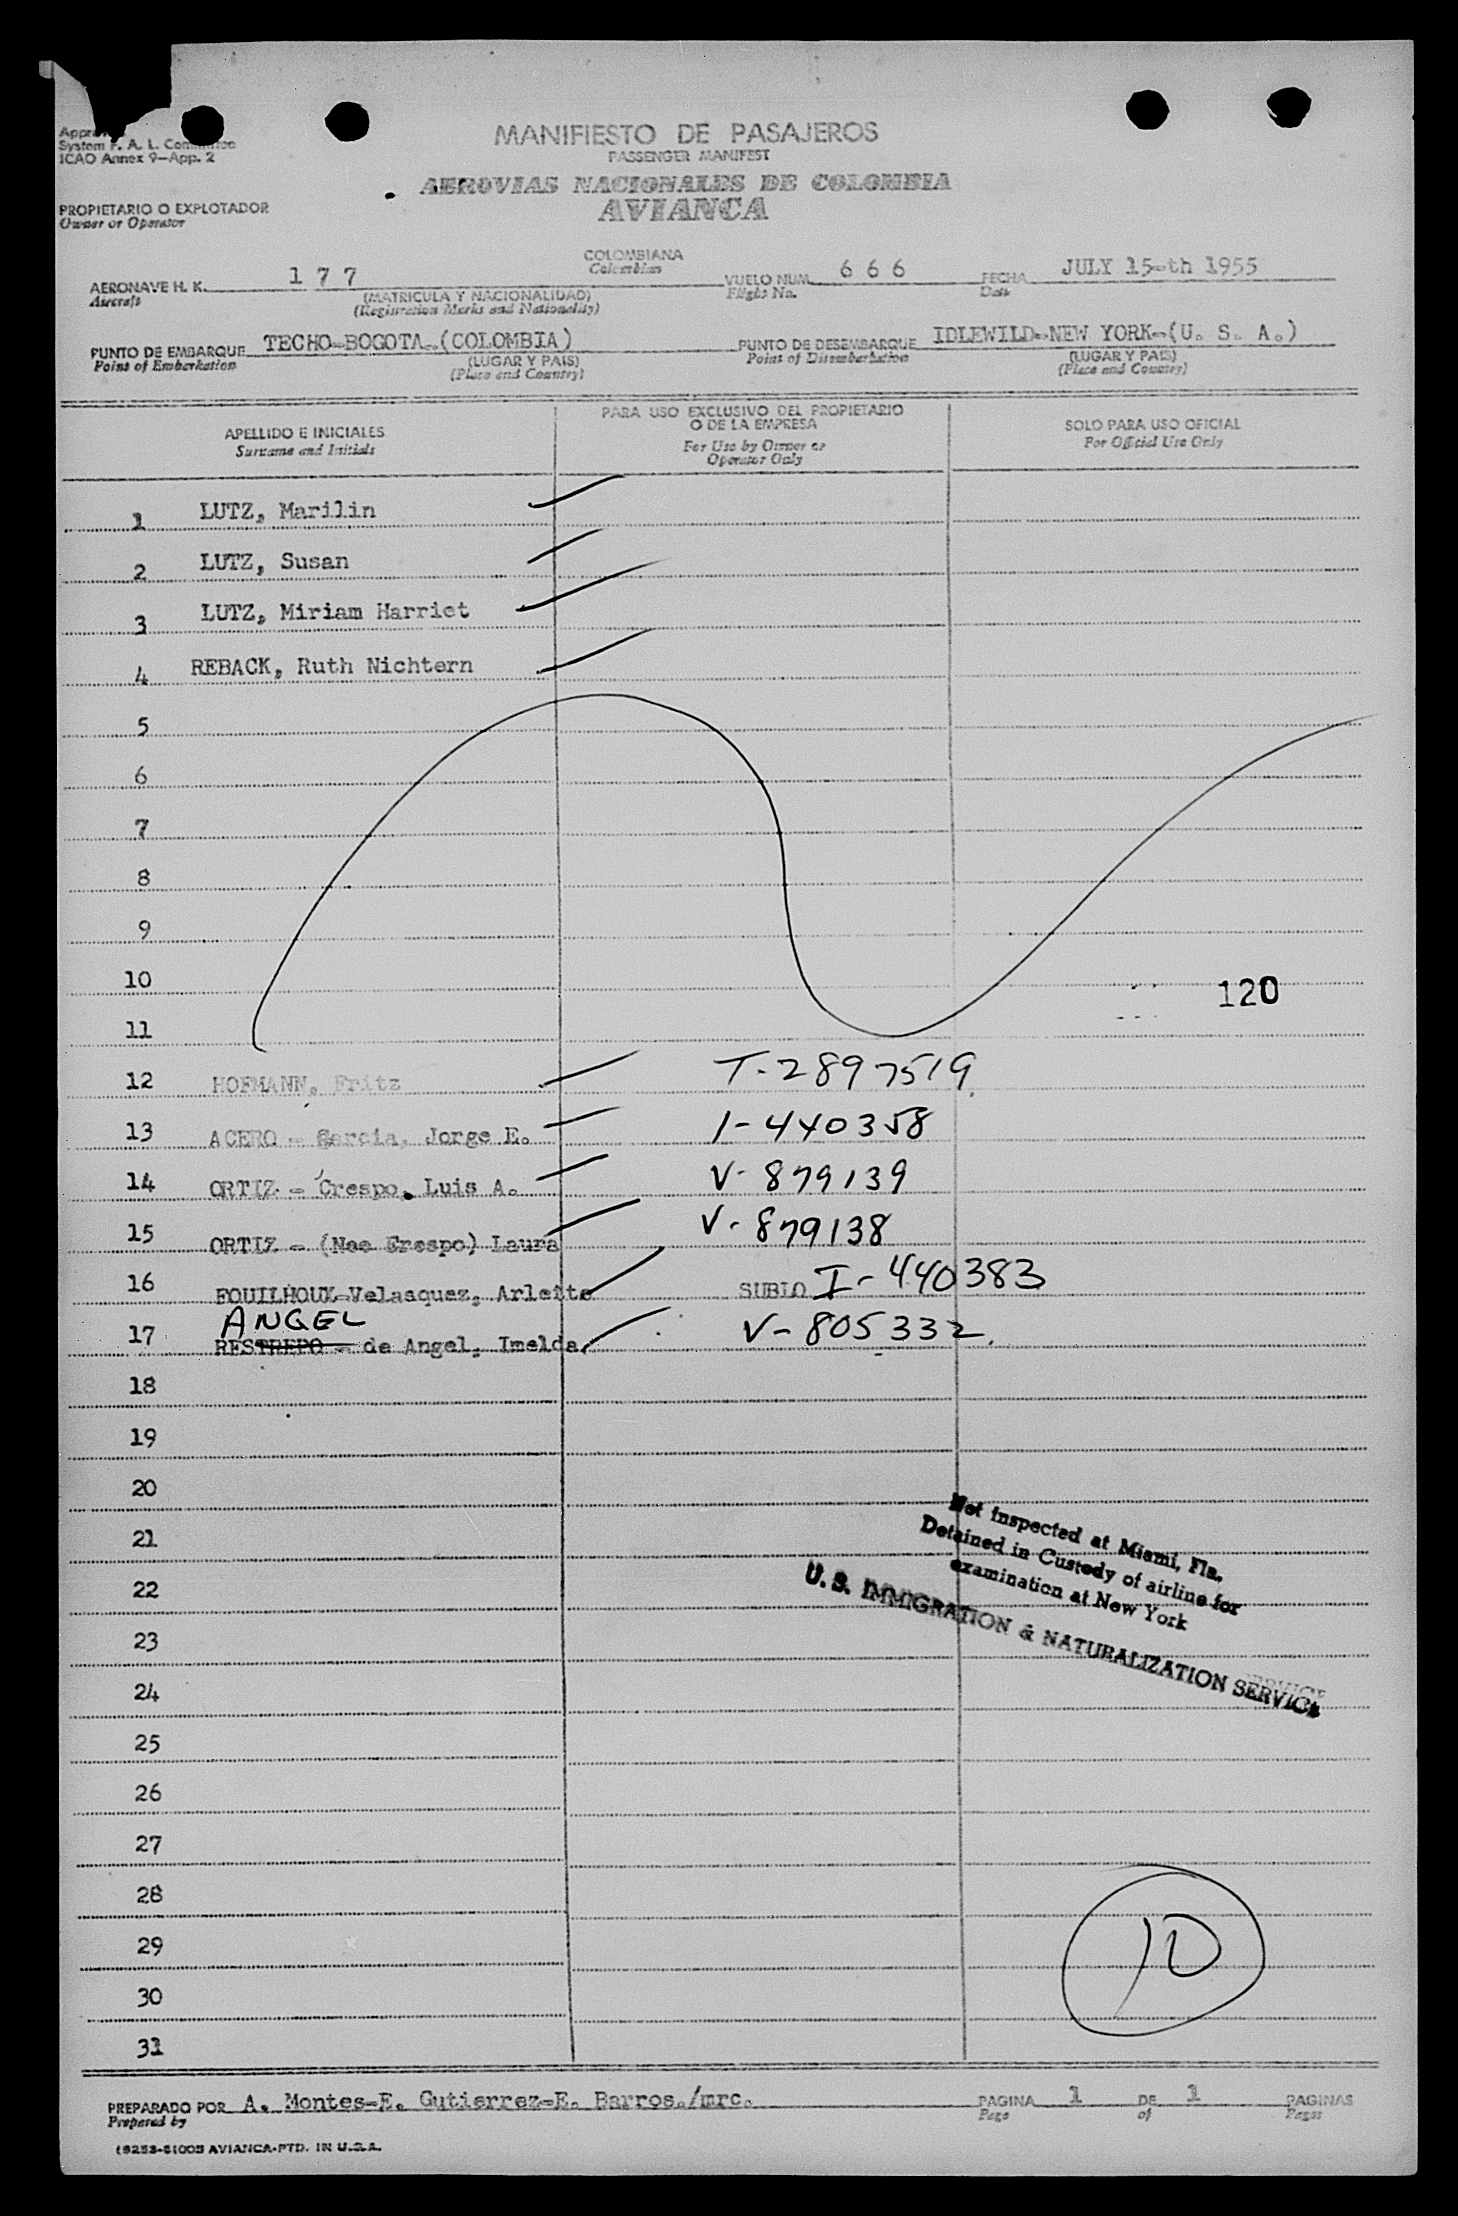 System F. A. L.
ICAO Annex 9-App. 2
MANIFIESTO DE PASAJEROS
PASSENGER MANIFEST
AEROVIAS NACIONALES DE COLOMBIA
AVIANCA
PROPIETARIO O EXPLOTADOR
Owner or Operator
AERONAVE H. K. 1 7 7 COLOMBIANA VUELO NUM. 6 6 6 FECHA JULY 15-th 1955
Aircraft (MATRICULA Y NACIONALIDAD) Colombian Flight No. Date
(Registration Marks and Nationality)
PUNTO DE EMBARQUE TECHO-BOGOTA-(COLOMBIA) PUNTO DE DESEMBARQUE IDLEWILD-NEW YORK-(U. S. A.)
Point of Embarkation (LUGAR Y PAIS) Point of Disembarkation (LUGAR Y PAIS)
(Place and Country) (Place and Country)
APELLIDO E INICIALES PARA USO EXCLUSIVO DEL PROPIETARIO O DE LA EMPRESA SOLO PARA USO OFICIAL
Surname and Initials For Use by Owner or Operator Only For Official Use Only
1 LUTZ, Marilin
2 LUTZ, Susan
3 LUTZ, Miriam Harriet
4 REBACK, Ruth Nichtern
5
6
7
8
9
10 120
11
12 HOFMANN, Fritz T-2897519
13 ACERO - Garcia, Jorge E. I-440358
14 ORTIZ - Crespo, Luis A. V-879139
15 ORTIZ - (Nee Crespo) Laura V-879138
16 FOUILHOUX-Velasquez, Arleite SUBIO I-440383
ANGEL
17 RESTREPO - de Angel, Imelda V-805332.
18
19
20
21
22
23
24
25
26
27
28
29
30
31
Not inspected at Miami, Fla.
Detained in Custody of airline for
examination at New York
U. S. IMMIGRATION & NATURALIZATION SERVICE
10
PREPARADO POR A. Montes-E. Gutierrez-E. Barros./mrc. PAGINA 1 DE 1 PAGINAS
Prepared by Page of Pages
AVIANCA-PTD. IN U.S.A.